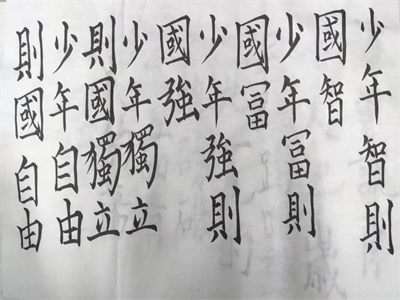 少年智則
國智
少年冨則
國冨
少年強則
國強
少年獨立
則國獨立
少年自由
則國自由